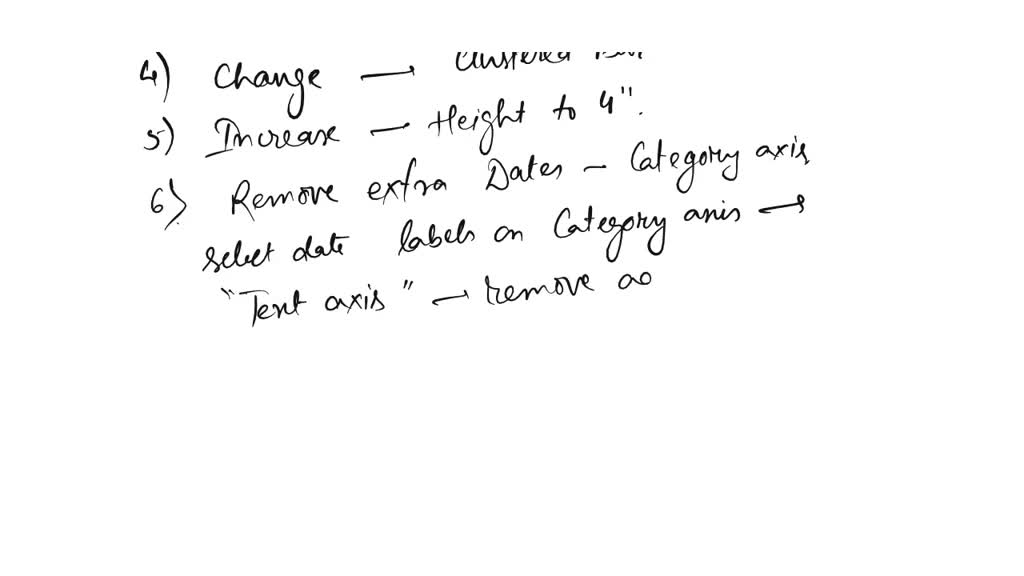 4) Change —
5) Increase — Height to 4".
6) Remove extra Dates – Category axis
select date labels on Category axis →
"Text axis" → remove ao